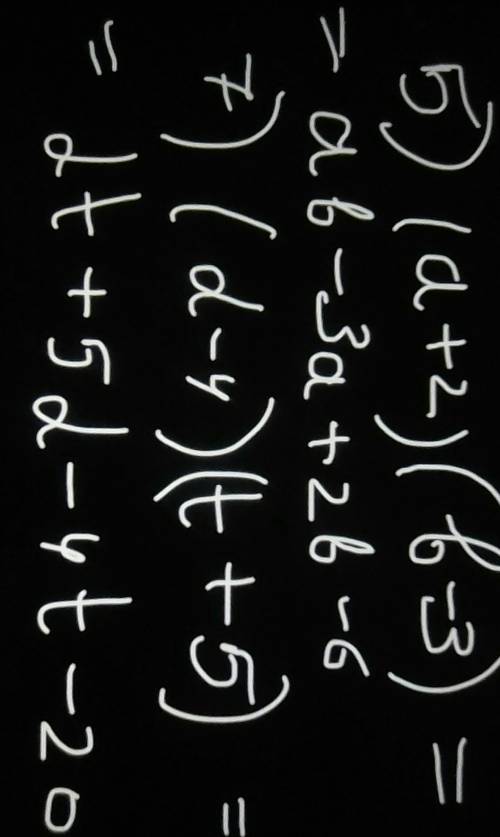 5) (a+2)(b-3) =
= ab-3a+2b-6
7) (d-4)(t+5) =
= dt+5d-4t-20